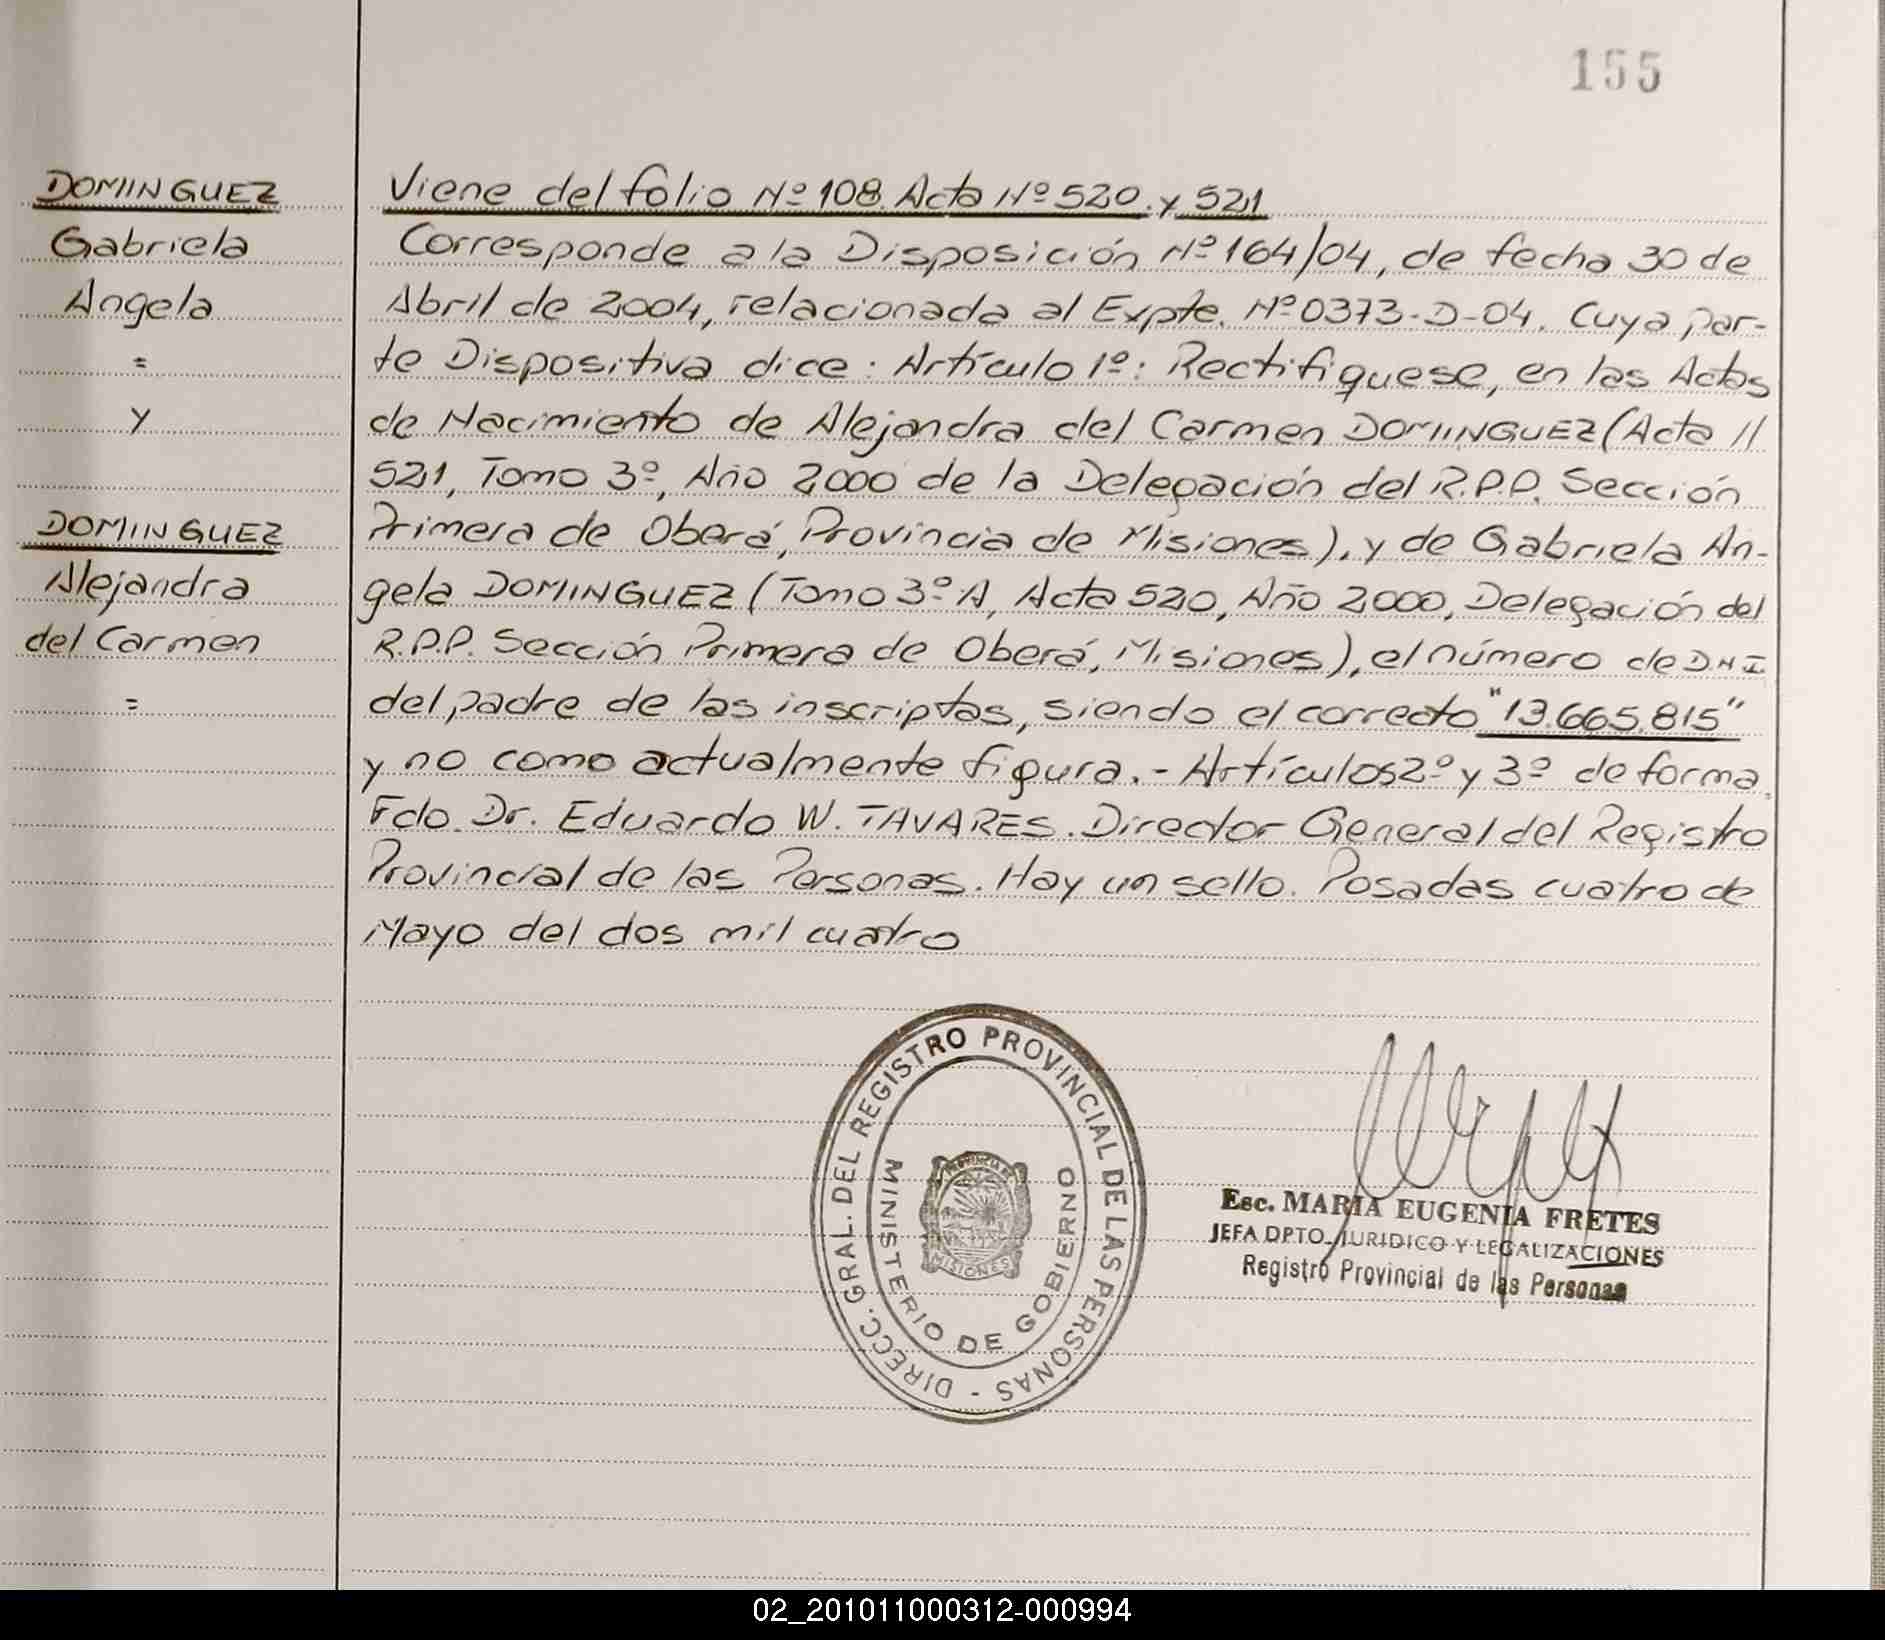 155
DOMINGUEZ
Gabriela
Angela
=
y
DOMINGUEZ
Alejandra
del Carmen
=
Viene del folio Nº 108. Acta Nº 520. y 521
Corresponde a la Disposición Nº 164/04, de fecha 30 de
Abril de 2004, relacionada al Expte. Nº 0373-D-04. Cuya par-
te Dispositiva dice: Artículo 1º: Rectifiquese, en las Actas
de Nacimiento de Alejandra del Carmen DOMINGUEZ (Acta //
521, Tomo 3º, Año 2000 de la Delegación del R.P.P. Sección
Primera de Oberá, Provincia de Misiones), y de Gabriela An-
gela DOMINGUEZ (Tomo 3º A, Acta 520, Año 2000, Delegación del
R.P.P. Sección Primera de Oberá, Misiones), el número de D.N.I.
del padre de las inscriptas, siendo el correcto "13.665.815"
y no como actualmente figura.- Artículos 2º y 3º de forma.
Fdo. Dr. Eduardo W. TAVARES. Director General del Registro
Provincial de las Personas. Hay un sello. Posadas cuatro de
Mayo del dos mil cuatro
DIRECC. GRAL. DEL REGISTRO PROVINCIAL DE LAS PERSONAS -
MINISTERIO DE GOBIERNO
PROVINCIA DE
MISIONES
Esc. MARIA EUGENIA FRETES
JEFA DPTO. JURIDICO Y LEGALIZACIONES
Registro Provincial de las Personas
02_201011000312-000994